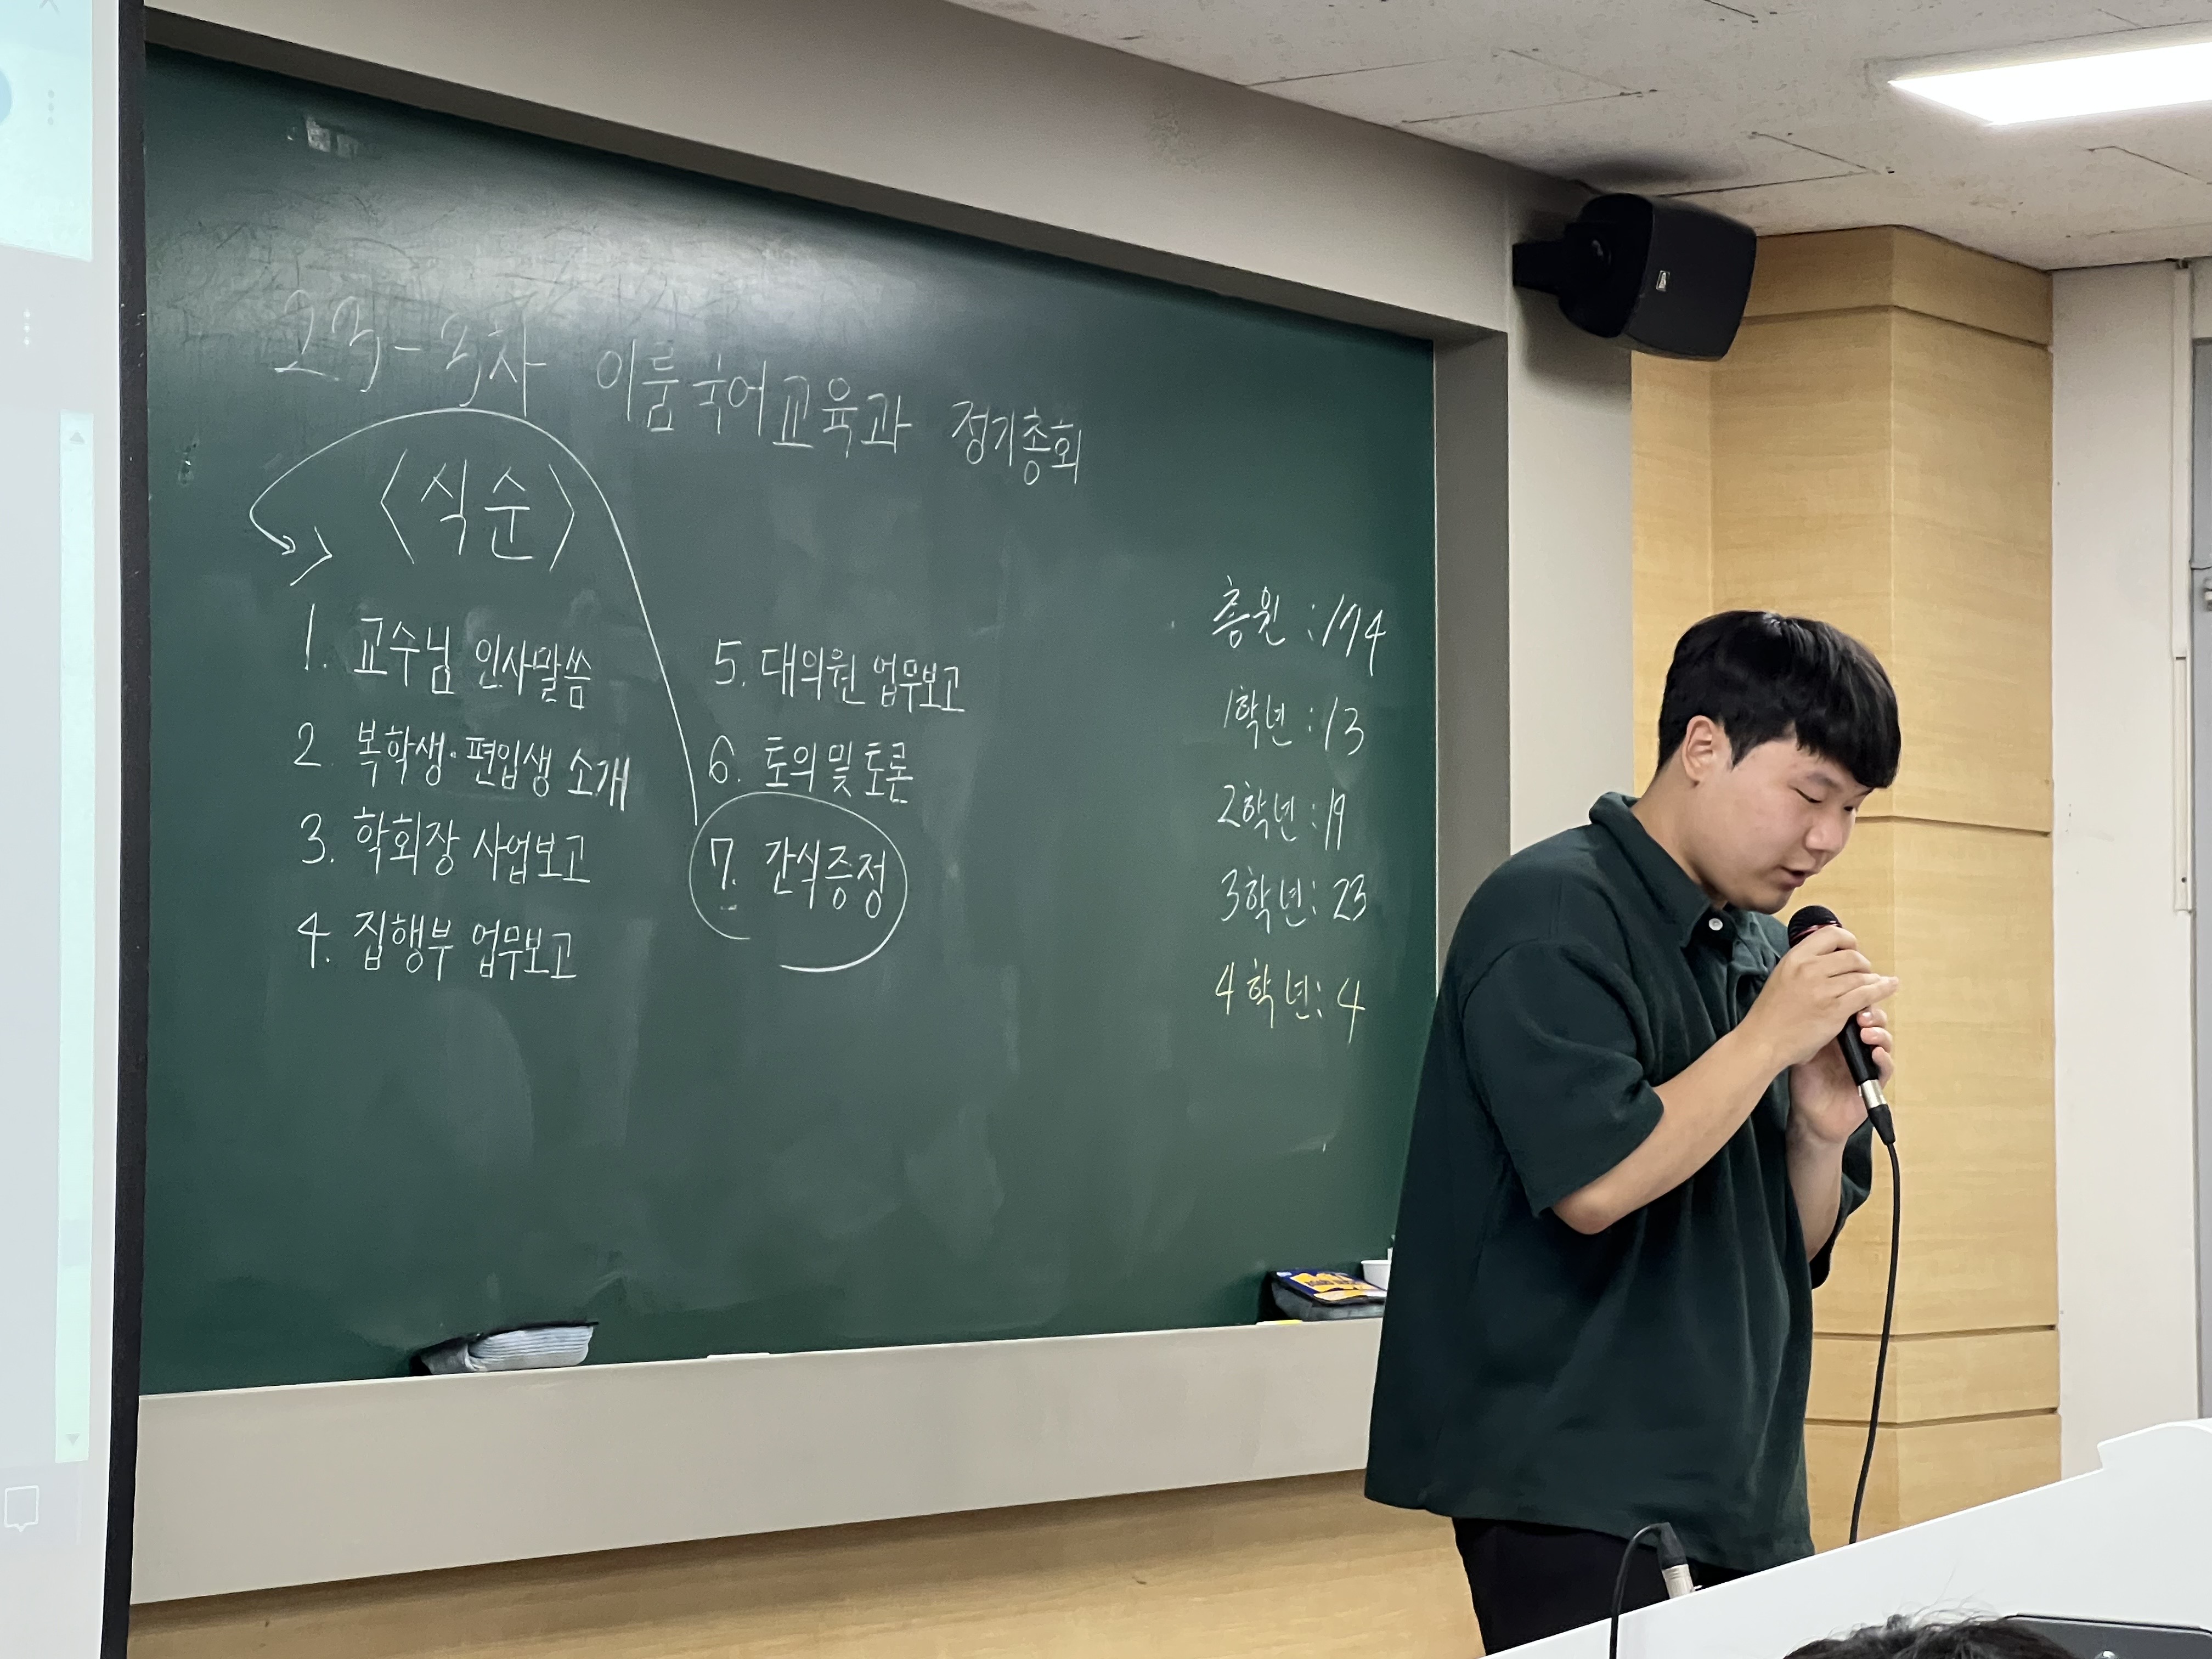 23-3차 이룸국어교육과 정기총회
<식순>
1. 교수님 인사말씀
2. 복학생·편입생 소개
3. 학회장 사업보고
4. 집행부 업무보고
5. 대의원 업무보고
6. 토의 및 토론
7. 간식증정
총원 : 174
1학년 : 13
2학년 : 19
3학년 : 23
4학년 : 4